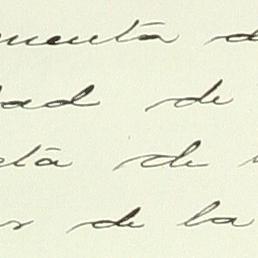 menta d
dad de
ctá de
s de la